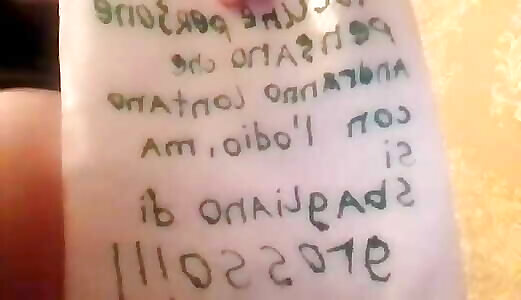 alcune persone
pensano che
Andranno lontano
con l'odio, ma
si
sbagliano di
grosso!!!